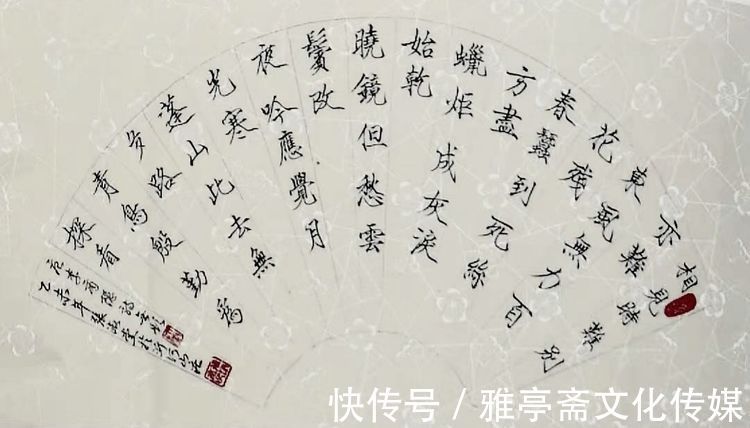 相見時難別
亦難
東風無力百
花殘
春蠶到死絲
方盡
蠟炬成灰淚
始乾
曉鏡但愁雲
鬢改
夜吟應覺月
光寒
蓬山此去無
多路
青鳥殷勤為
探看
李商隱詩
快传号 / 雅亭斋文化传媒